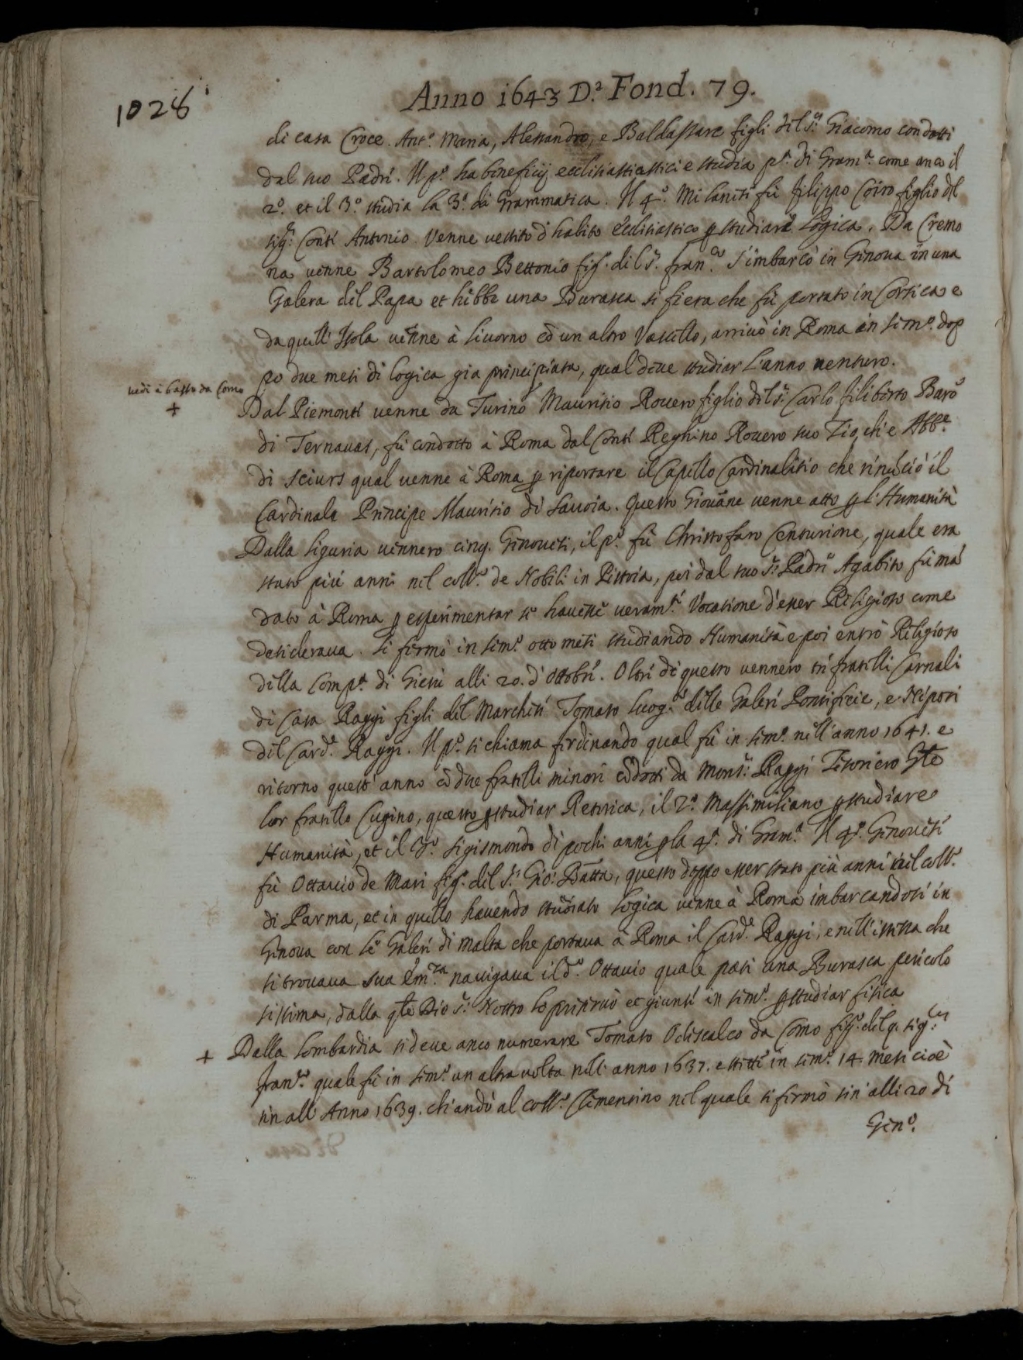 1028
Anno 1643 D.ª Fond. 79.
di casa Croce Ant.º Maria, Alessandro, e Baldassare figli del S.r Giacomo condotti
dal suo Padre. Il p.º ha beneficij ecclesiastici e studia p.ª di Gram.ª come anco il
2.º et il 3.º studia la 3.ª di Grammatica. Il 4.º Milanese fù filippo Coiro figlio del
sig.r Conte Antonio Venne vestito d'habito ecclesiastico p studiare Logica. Da Cremo
na venne Bartolomeo Bettonio fig.º del S.r fran.co S'imbarcò in Genova in una
Galera del Papa et hebbe una Burasca si fiera che fù portato in Corsica e
da quell'Isola venne à livorno cō un altro Vascello, arrivò in Roma in sem.º dop
po due mesi di logica gia principiata, qual deve studiar l'anno venturo.
vedi à basso da Como
+
Dal Piemonte venne da Turino Mauritio Rovero figlio del S.r Carlo filiberto Barō
di Ternavas, fù condotto à Roma dal Conte Reghino Rovero suo Zio, che è Abb.e
di sciurs qual venne à Roma p riportare il Capello Cardinalitio che rinūciò il
Cardinale Principe Mauritio di Savoia. Questo Giovane venne atto p l'Humanità
Dalla liguria vennero cinq. Genovesi, il p.º fù Christofaro Centurione, quale era
stato piu anni nel coll.º de Nobili in , poi dal suo S.r Padre Agabito fù mā
dato à Roma p esperimentar se havesse veram.te Vocatione d'esser Religioso come
desiderava. si fermò in sem.º otto mesi studiando Humanità e poi entrò Religioso
della Comp.ª di Giesù alli 20. d'Ottobre. Oltre di questo vennero tre fratelli Carnali
di Casa Raggi figli del Marchese Tomaso luog.te delle Galere Pontificie, e Nipoti
del Card.e Raggi. Il p.º si chiama ferdinando qual fù in sem.º nell'anno 1641. e
ritorno questo anno cō due fratelli minori cōdotti da Mons.r Raggi Tesoriero G.le
lor fratello Cugino, questo p studiar Retorica, il 2.º Massimiliano p studiare
Humanità, et il 3.º sigismondo di pochi anni p la 4.ª di Gram.ª Il 4.º Genovese
fù Ottavio de Mari fig.º del S.r Gio: Batta, questo doppo esser stato più anni nel coll.º
di Parma, et in quello havendo studiato Logica venne à Roma imbarcandosi in
Genova con le Galere di malta che portava à Roma il Card.e Raggi, e nell'istessa che
si trovava sua Em.za navigava il d.º Ottavio quale pati una Burasca pericolo
sissima, dalla q.le Dio S.r Nostro lo preservò et giunse in sem.º p studiar fisica
+ Della Lombardia si deve anco numerare Tomaso Odescalco da Como fig.º del q. sig.r
fran.º quale fù in sem.º un altra volta nell'anno 1637. e stette in sem.º 14. mesi cioè
sin all'Anno 1639. ch'andò al coll.º Clementino nel quale si fermò sin'alli 20 di
Gen.º